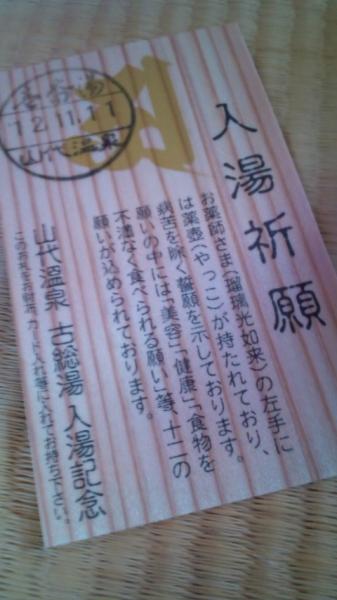 入湯祈願
お薬師さま(瑠璃光如来)の左手に
は薬壺(やっこ)が持たれており、
病苦を除く誓願を示しております。
願いの中には「美容」「健康」「食物を
不満なく食べられる願い」等、十二の
願いが込められております。
山代温泉 古総湯 入湯記念
このお札をお財布、カード入れ等に入れてお持ち下さい。
12.11.11
山代温泉